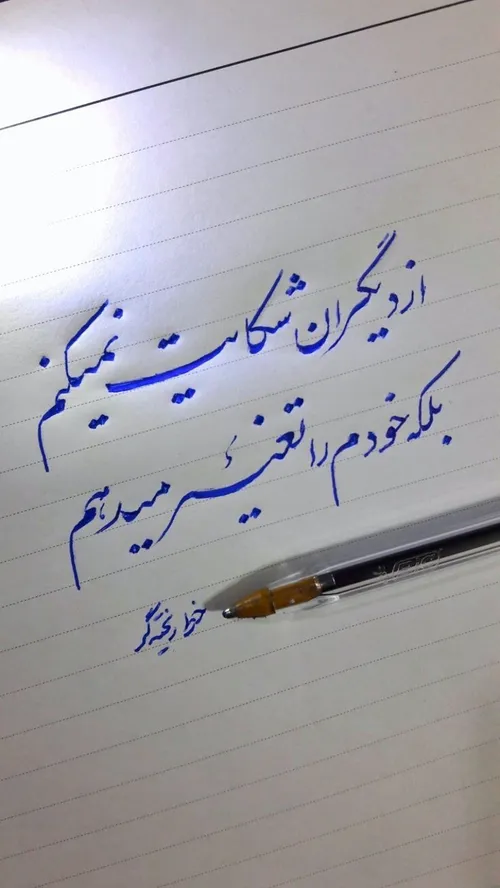 از دیگران شکایت نمیکنم
بلکه خودم را تغئیر میدهم